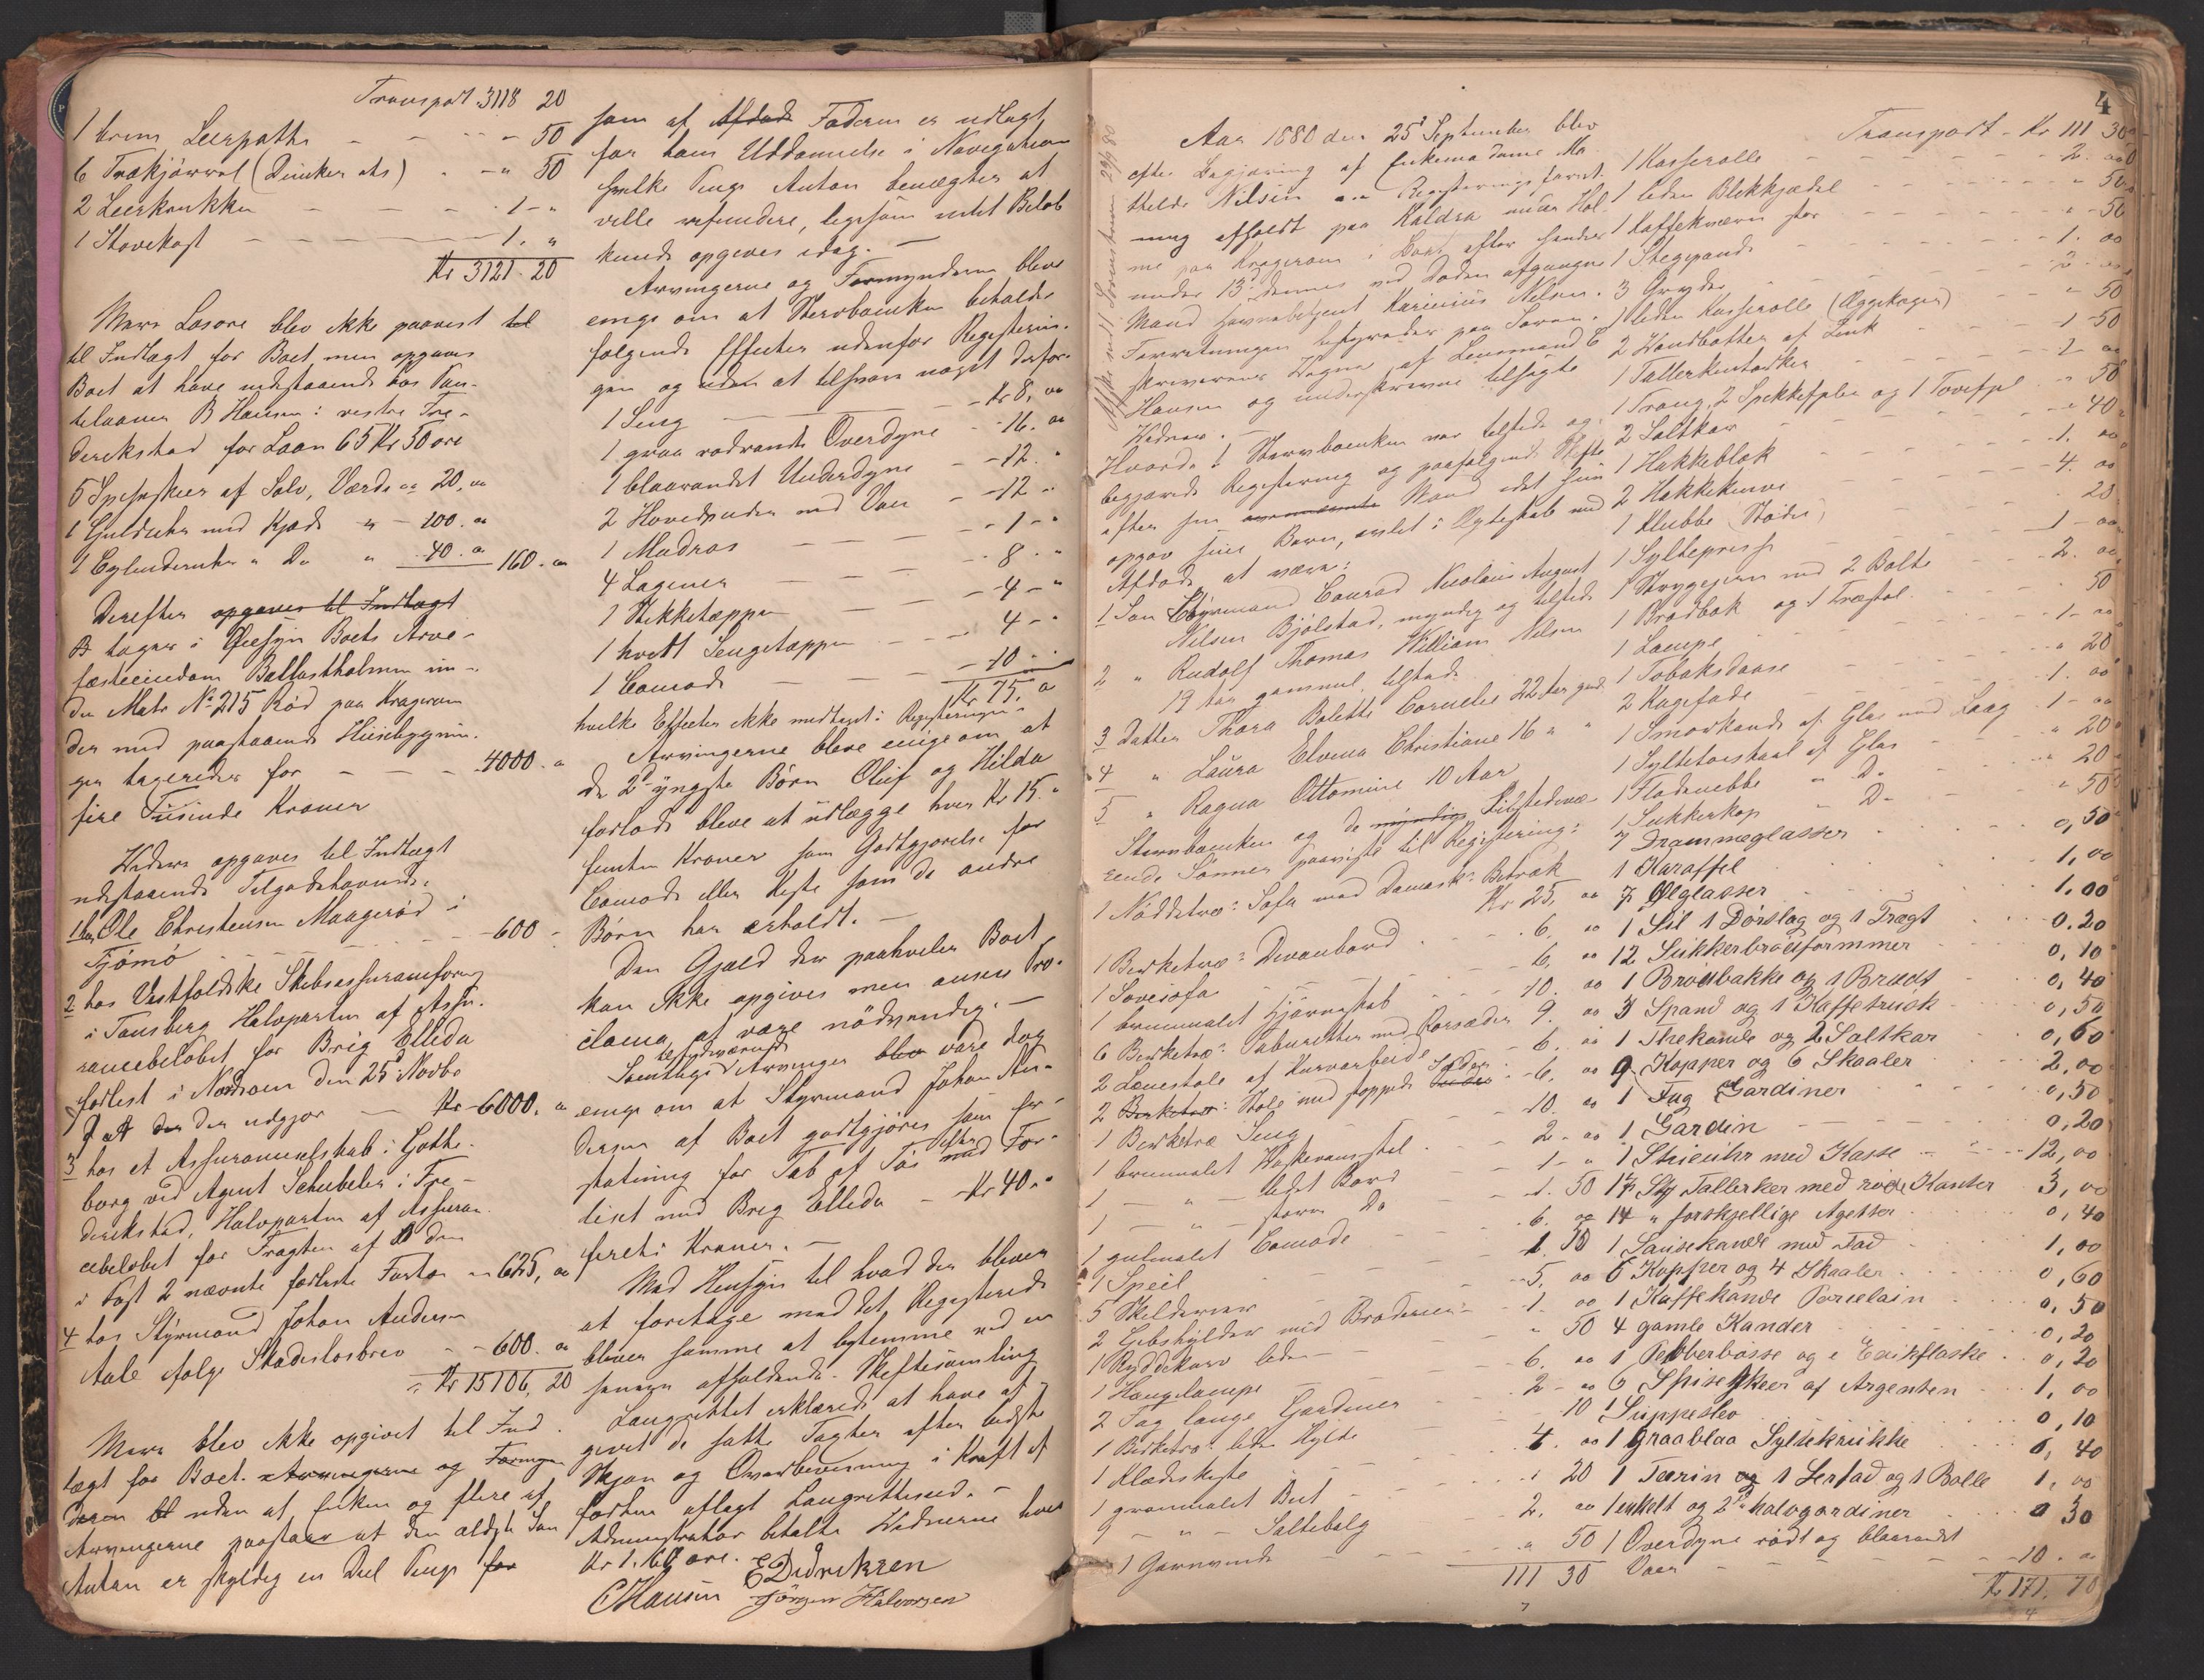 Transport 3118 20
1 brun Leerpotte - - - " 50
6 Trækjørrel (Dunker etc) - " 50
2 Leerkrukker - - - 1 - "
1 Stovekost - - - 1. "
Kr 3121. 20
Mere Løsøre blev ikke paavist til
til Indtægt for Boet men opgaves
Boet at have indestaaende hos Pan-
telaaner B Hansen i vestre Fre-
derikstad for Laan 65 Kr 50 øre
5 Spiseskeer af Sølv, Værdi " 20, "
1 Guldsuhr med Kjæde " - 100. "
1 Cylinderuhr " Do " 40. " 160. "
Derefter opgaves til Indtægt
B tages i Øiesyn Boets Arve-
fæsteeiendom Ballastholmen un-
der Matr No 215 Rød paa Kragerøen
der med paastaaende Huusbygnin-
ger tageredes for - - - 4000. "
fire Tusinde Kroner
Videre opgaves til Indtægt
udestaaende Tilgodehavende:
1 hos Ole Christensen Maagerød i
Tjømø - - - 600 -
2 hos Vestfoldske Skibsassuranceforeng
i Tønsberg Halvparten af Assu-
rancebeløbet for Brig Ellida
forlist i Nordsøen den 25d Novbr
f at der den udgjør - Kr 6000. "
3 hos et Assuranceselskab i Gothe-
borg ved Agent Schubeler i Fre-
derikstad, Halvparten af Assuran-
cebeløbet for Fragten af den
i Post 2 nævnte forliste Farto " 625, "
4 hos Styrmand Johan Anders-
Aale ifølge Skadesløsbrev - - 600. "
" Kr 15106, 20
Mere blev ikke opgivet til Ind-
tægt for Boet. Arvingerne og Formyn
deren uden at Enken og flere af
Arvingerne paastaar at den ældste Søn
Anton er skyldig en Deel Penge for
som af Afdøde Faderen er udlagt
for hans Uddannelse i Navigation
hvilke Penge Anton benægter at
ville refundere, ligesom intet Beløb
kunde opgives idag. -
Arvingerne og Formynderne bleve
enige om at Stervboenken beholder
følgende Effecter udenfor Registerin-
gen og uden at tilsvare noget derfor:
1 Seng - - - Kr 8, "
1 graa rødrandt Overdyne - - 16. "
1 blaarandet Underdyne - - 12. "
2 Hovedpuder med Vaer - - 12 "
1 Madras - - - 1 - "
4 Lagener - - - 8. "
1 Stikketæppe - - - 4 - "
1 hvidt Sengetæppe - - - 4 - "
1 Comode - - - 10 - "
Kr 75, "
hvilke Effecter ikke medtoges i Registeringen -
Arvingerne bleve enige om at
de 2de yngste Børn Oluf og Hilda
forlods bleve at udlægge hver Kr 15. "
femten Kroner som Godtgjørelse for
Comode eller Kiste som de andre
Børn har erholdt. -
Den Gjæld der paahviler Boet
kan ikke opgives men ansees Pro-
clama at være nødvendig. -
tilstedeværende
Samtlige Arvinger blev vare dog
enige om at Styrmand Johan An-
dersen af Boet godtgjøres som Er-
statning for Tab af Tøi efter med For-
liset med Brig Ellida - Kr 40. "
fireti Kroner. -
Med Hensyn til hvad der bliver
at foretage med det Registerede
bliver samme at bestemme ved en
senere afholdende Skiftesamling
Laugrettet erklærede at have af-
givet de satte Taxter efter bedste
Skjøn og Overbeviisning i Kraft af
forhen aflagt Laugretteseed. -
Administrator betalte Vidnerne hver
Kr 1. 60 øre. EDidriksen
CHansen Jörgen Halvorsen
4
Aar 1880 den 25d September blev
efter Begjæring af Enkemadame Ma-
thilde Nilsen en Registeringsforret-
ning afholdt paa Kaldra under Hol-
me paa Kragerøen i Boet efter hendes
under 13d dennes ved Døden afgangne
Mand Havnebetjent Karinius Nilsen.
Forretningen bestyredes paa Soren-
skriverens Vegne af Lensmand C
Hansen og underskrevne tilsagte
Vidner. -
Hvorda! Stervboenken var tilstede og
begjærede Registering og paafølgende Skifte
efter sin Mand idet hun
opgav sine Børn, avlet i Ægteskab med
Afdøde, at være:
1 Søn Styrmand Conrad Nicolaus August
Nilsen Bjølstad, myndig og tilstede
2 " Rudolf Thomas William Nilsen
19 Aar gammel, tilstede
3 Datter Thora Bolette Cornelie 22 Aar gml.
4 " Laura Elvina Christiane 16 " "
5 " Ragna Ottomine 10 Aar
Stervboenken og de myndige Tilstedevæ-
rende Sønner paaviste til Registering:
1 Nøddetræs Sofa med Damask Betræk
Kr 25, "
1 Birketræs Divanbord - - 6. "
1 Sovesofa - - - 6. "
1 brunmalet Hjørneskab - - 10. "
6 Birketræs Tabouretter med Rørsæder 9. "
2 Lænestole af Kurvarbeide - 6. "
2 Birketræs Stole med stoppede Sæder - 6, "
1 Birketræ Seng - - 10. "
1 brunmalet Vaskevandsstel - 2 - "
1 - " - lidet Bord - 1 - "
1 - " - større Do - 1. 50
1 gulmalet Comode - - 6. "
1 Speil - - - 1. 50
5 Skilderier - - - 5, "
2 Gibshylder med Broderier - - 1. "
1 Ryddekurv liden - - " 50
1 Hængelampe - - 6. "
2 Fag lange Gardiner - - 2 - "
1 Birketræs liden Hylde - 10
1 Klædekiste - - 4. "
1 grønmalet Bret - - " 20
9 - " - Saltebalg - - 2. "
1 Garnvinde - - - " 50
111 30
Transport - Kr 111 30
1 Kasserolle - - - 2. 00
1 liden Blikkjedel - - - " 50
1 Kaffekværn stor - - - " 50
1 Stegepande - - - 1. 00
3 Gryder - - - 2. 00
1 liden Kasserolle (Æggekoger) - " 50
2 Vandbøtter af Zink - - 1 50
1 Tallerkentørker - - 1 00
1 Traug, 2 Spekkefjæler og 1 Tovefjæl " 50
2 Saltkar - - - " 40
1 Hakkeblok - - - 1. 00
2 Hakkeknive - - - 4. 00
1 Klubbe (Støder) - - - 20
1 Syltepresse - - - 1 - 00
1 Strygejern med 2 Bolte - - 2. 00
1 Brødbak og 1 Træstol - - 50
1 Lampe - - - 1 - 00
1 Tobaksdaase - - - " 20
2 Kagefade - - - 1. 00
1 Smørkande af Glas med Laag - 1 - 00
1 Syltetøiskaal af Glas - - " 20
1 Flødenebbe " Do - - " 20
1 Sukkerkop " Do - - " 50
7 Drammeglasser - - 0,50
1 Karaffel - - - 1,00
7 Ølglasser - - - 1.00
1 Sil 1 Dörslag og 1 Tragt - - 0.20
12 Sukkerbrödformmer - - 0,10
1 Brödbakke og 1 Brudt - 0,40
3 Spand og 1 Kaffetrusk - 0,50
1 Thekande og 2 Saltkar - 0,60
9 Kopper og 6 Skaaler - 2,00
1 Fag Gardiner - - 0,50
1 Gardin - - - 0,20
1 Stueuhr med Kasse - - 12,00
17 Stk Tallerker med røde Kanter 3,00
14 " forskjellige Agetter - 0,40
1 Sausekande med Fad - 1,00
6 Kopper og 4 Skaaler - 0,60
1 Kaffekande Porcelain - 0,50
4 gamle Kander - - 0,20
1 Pebberbösse og 1 Edikflaske - 0,20
6 Spiseskeer af Argenten - 1,00
1 Suppeslev - - - 0,10
1 Graablaa Syltekrukke - 0,40
1 Terin og 1 Lerfad og 1 Bolle 1,00
1 enkelt og 2de halvgardiner - 0 30
1 Overdyne rødt og blaarandet
Vaer - - - 10. "
Kr 171. 70